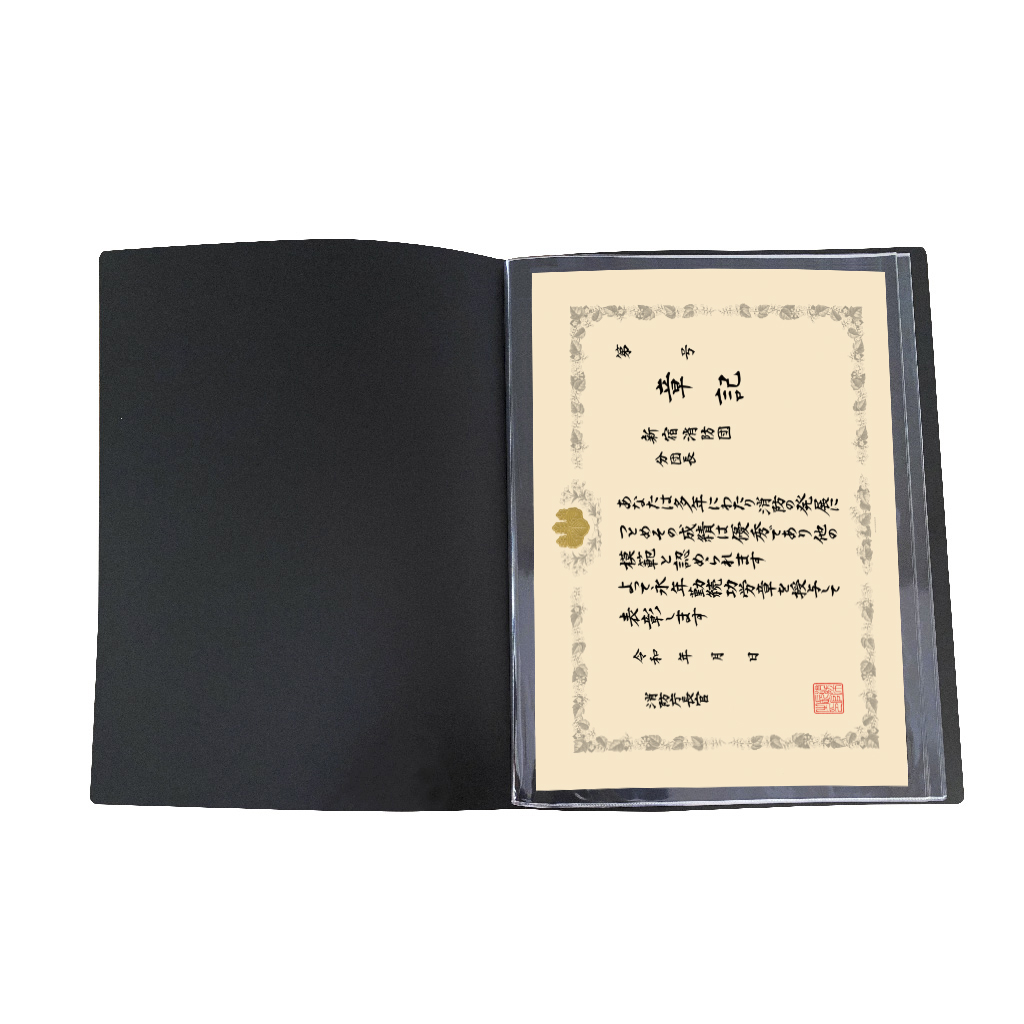 第　　号
章記
新宿消防団
分団長
あなたは多年にわたり消防の発展に
つとめその成績は優秀であり他の
模範と認められます
よって永年勤続功労章を授与して
表彰します
令和　年　月　日
消防庁長官